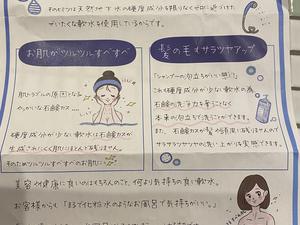 そのヒミツは天然地下水の硬度成分を限りなくゼロに近づけた
ぜいたくな軟水を使用しているからです。
お肌がツルツルすべすべ
肌トラブルの原因となる
やっかいな石鹸カスが…
硬度成分が少ない軟水は石鹸カスが
生成されにくく肌にほとんど残りません。
そのためツルツルすべすべのお肌に
髪の毛もサラツヤアップ
「シャンプーの泡立ちがいい感じ!」
これは硬度成分が少ない軟水の為
石鹸の洗浄力を損なうことなく
本来の泡立ちで洗うことができます。
また、石鹸カスが髪や頭皮に残りませんので
サラサラツヤツヤの洗い上がりを実感できます。
美容や健康に良いのはもちろんのこと、何より気持ちの良い軟水。
お客様から「まるで化粧水のようなお風呂で気持ちがいい。」